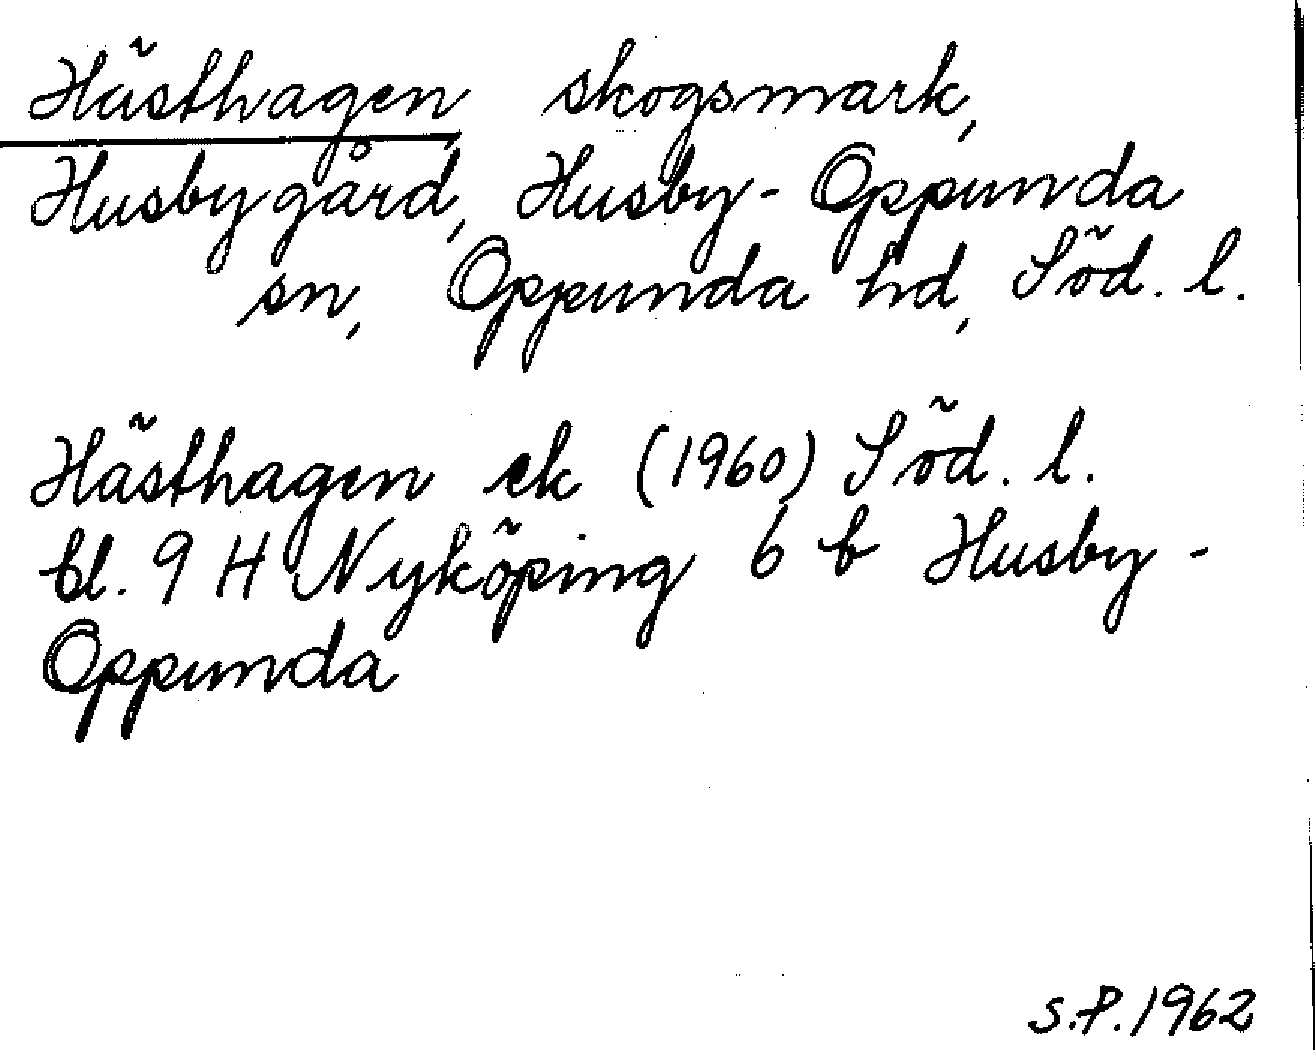 Hästhagen skogsmark,
Husbygård, Husby-Oppunda
sn, Oppunda hd, Söd. l.
Hästhagen ek (1960) Söd. l.
bl. 9 H Nyköping 6 b Husby-
Oppunda
S.P. 1962